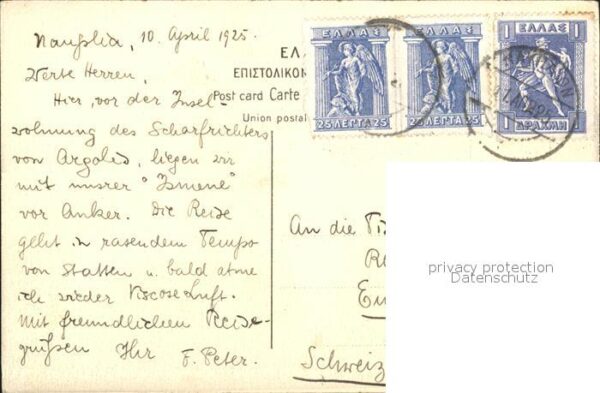 Nauplia, 10. April 1925.
Werte Herren,
Hier, vor der Insel-
wohnung des Scharfrichters
von Argolis, liegen wir
mit unsrer "Ismene"
vor Anker. Die Reise
geht in rasendem Tempo
von Statten u. bald atme
ich wieder Viscose Luft.
Mit freundlichen Reise-
grüßen Ihr F. Peter.
ΕΛ
ΕΠΙΣΤΟΛΙΚΟΝ
Post card Carte
Union postal
ΕΛΛΑΣ
25 ΛΕΠΤΑ 25
ΕΛΛΑΣ
25 ΛΕΠΤΑ 25
ΕΛΛΑΣ
1 ΔΡΑΧΜΗ 1
An die
Schweiz
privacy protection
Datenschutz